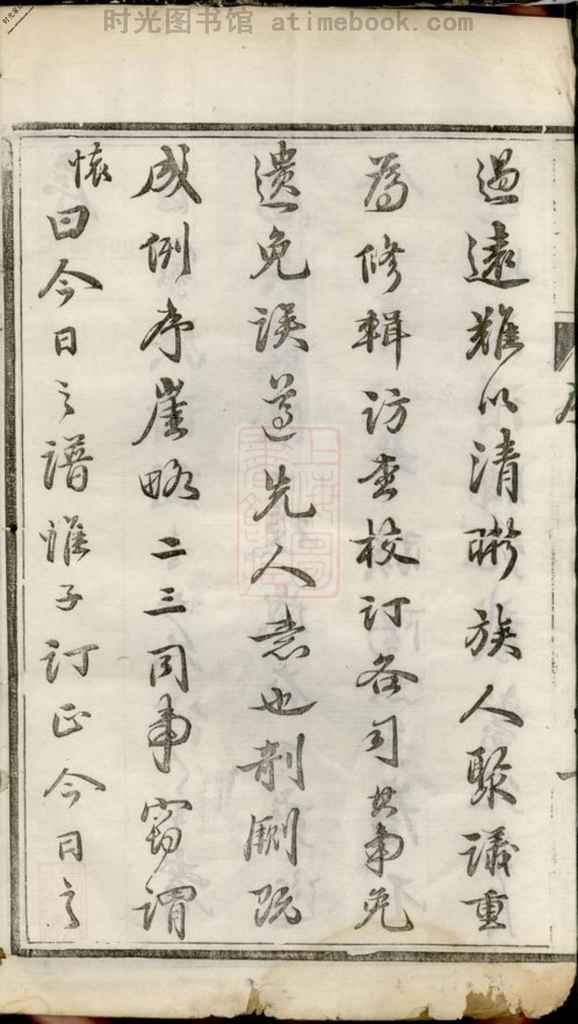 时光图书馆 atimebook.com
過遠難以清晰族人聚議重
為修輯訪查校訂各司其事免
遺免誤遵先人意也剞劂既
成例序崖略二三同事竊謂
懷曰今日之譜惟子訂正今日之